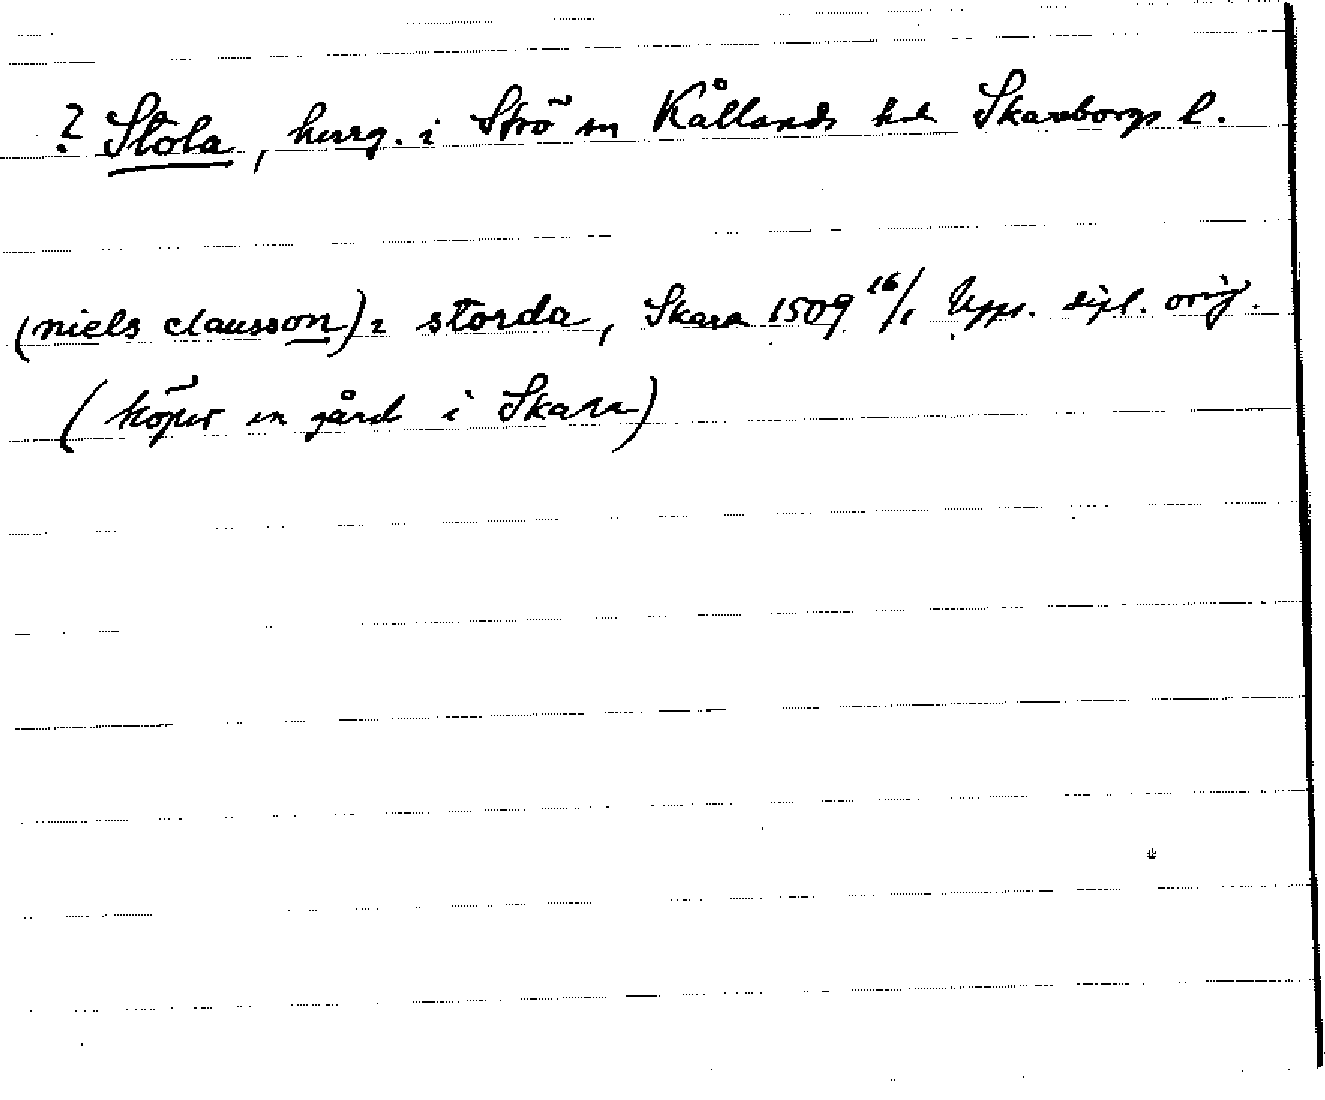 ? Stola, herrg. i Strö sn Kållands hd Skaraborgs l.
(niels clausson) i storda, Skara 1509 16/1 Upps. dipl. orig.
(köper en gård i Skara)